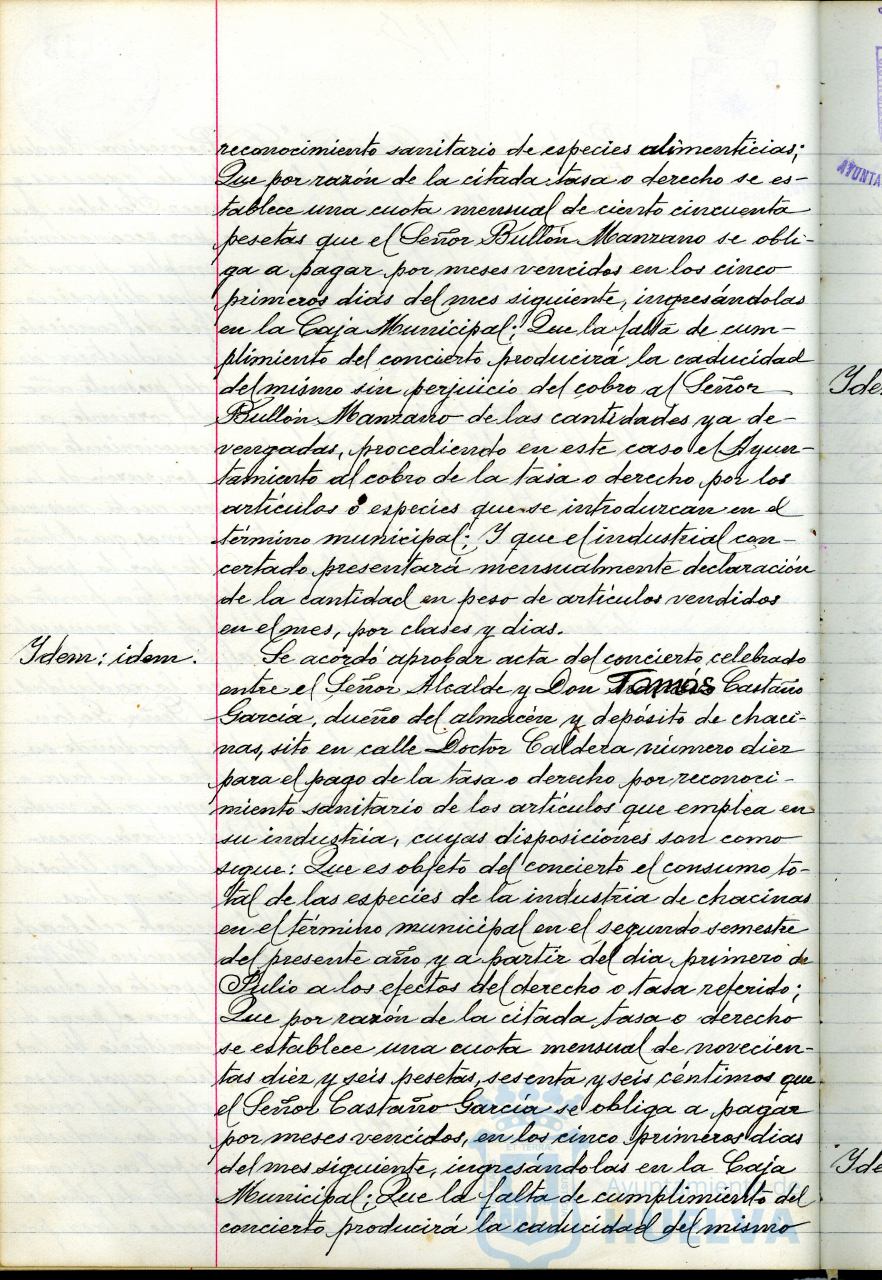 reconocimiento sanitario de especies alimenticias;
Que por razón de la citada tasa o derecho se es-
tablece una cuota mensual de ciento cincuenta
pesetas que el Señor Bullón Manzano se obli-
ga a pagar por meses vencidos en los cinco
primeros dias del mes siguiente, ingresándolas
en la Caja Municipal; Que la falta de cum-
plimiento del concierto producirá la caducidad
del mismo sin perjuicio del cobro al Señor
Bullón Manzano de las cantidades ya de-
vengadas, procediendo en este caso el Ayun-
tamiento al cobro de la tasa o derecho por los
artículos o especies que se introduzcan en el
término municipal; Y que el industrial con-
certado presentará mensualmente declaración
de la cantidad en peso de artículos vendidos
en el mes, por clases y dias.
Idem: idem.
Se acordó aprobar acta del concierto celebrado
entre el Señor Alcalde y Don Tomás Castaño
García, dueño del almacén y depósito de chaci-
nas, sito en calle Doctor Caldera número diez
para el pago de la tasa o derecho por reconoci-
miento sanitario de los artículos que emplea en
su industria, cuyas disposiciones son como
sigue: Que es objeto del concierto el consumo to-
tal de las especies de la industria de chacinas
en el término municipal en el segundo semestre
del presente año y a partir del dia primero de
Julio a los efectos del derecho o tasa referido;
Que por razón de la citada tasa o derecho
se establece una cuota mensual de novecien-
tas diez y seis pesetas, sesenta y seis céntimos que
el Señor Castaño García se obliga a pagar
por meses vencidos, en los cinco primeros dias
del mes siguiente, ingresándolas en la Caja
Municipal; Que la falta de cumplimiento del
concierto producirá la caducidad del mismo
AYUNTA
Ide
Ide
Ayuntamiento de
HUELVA